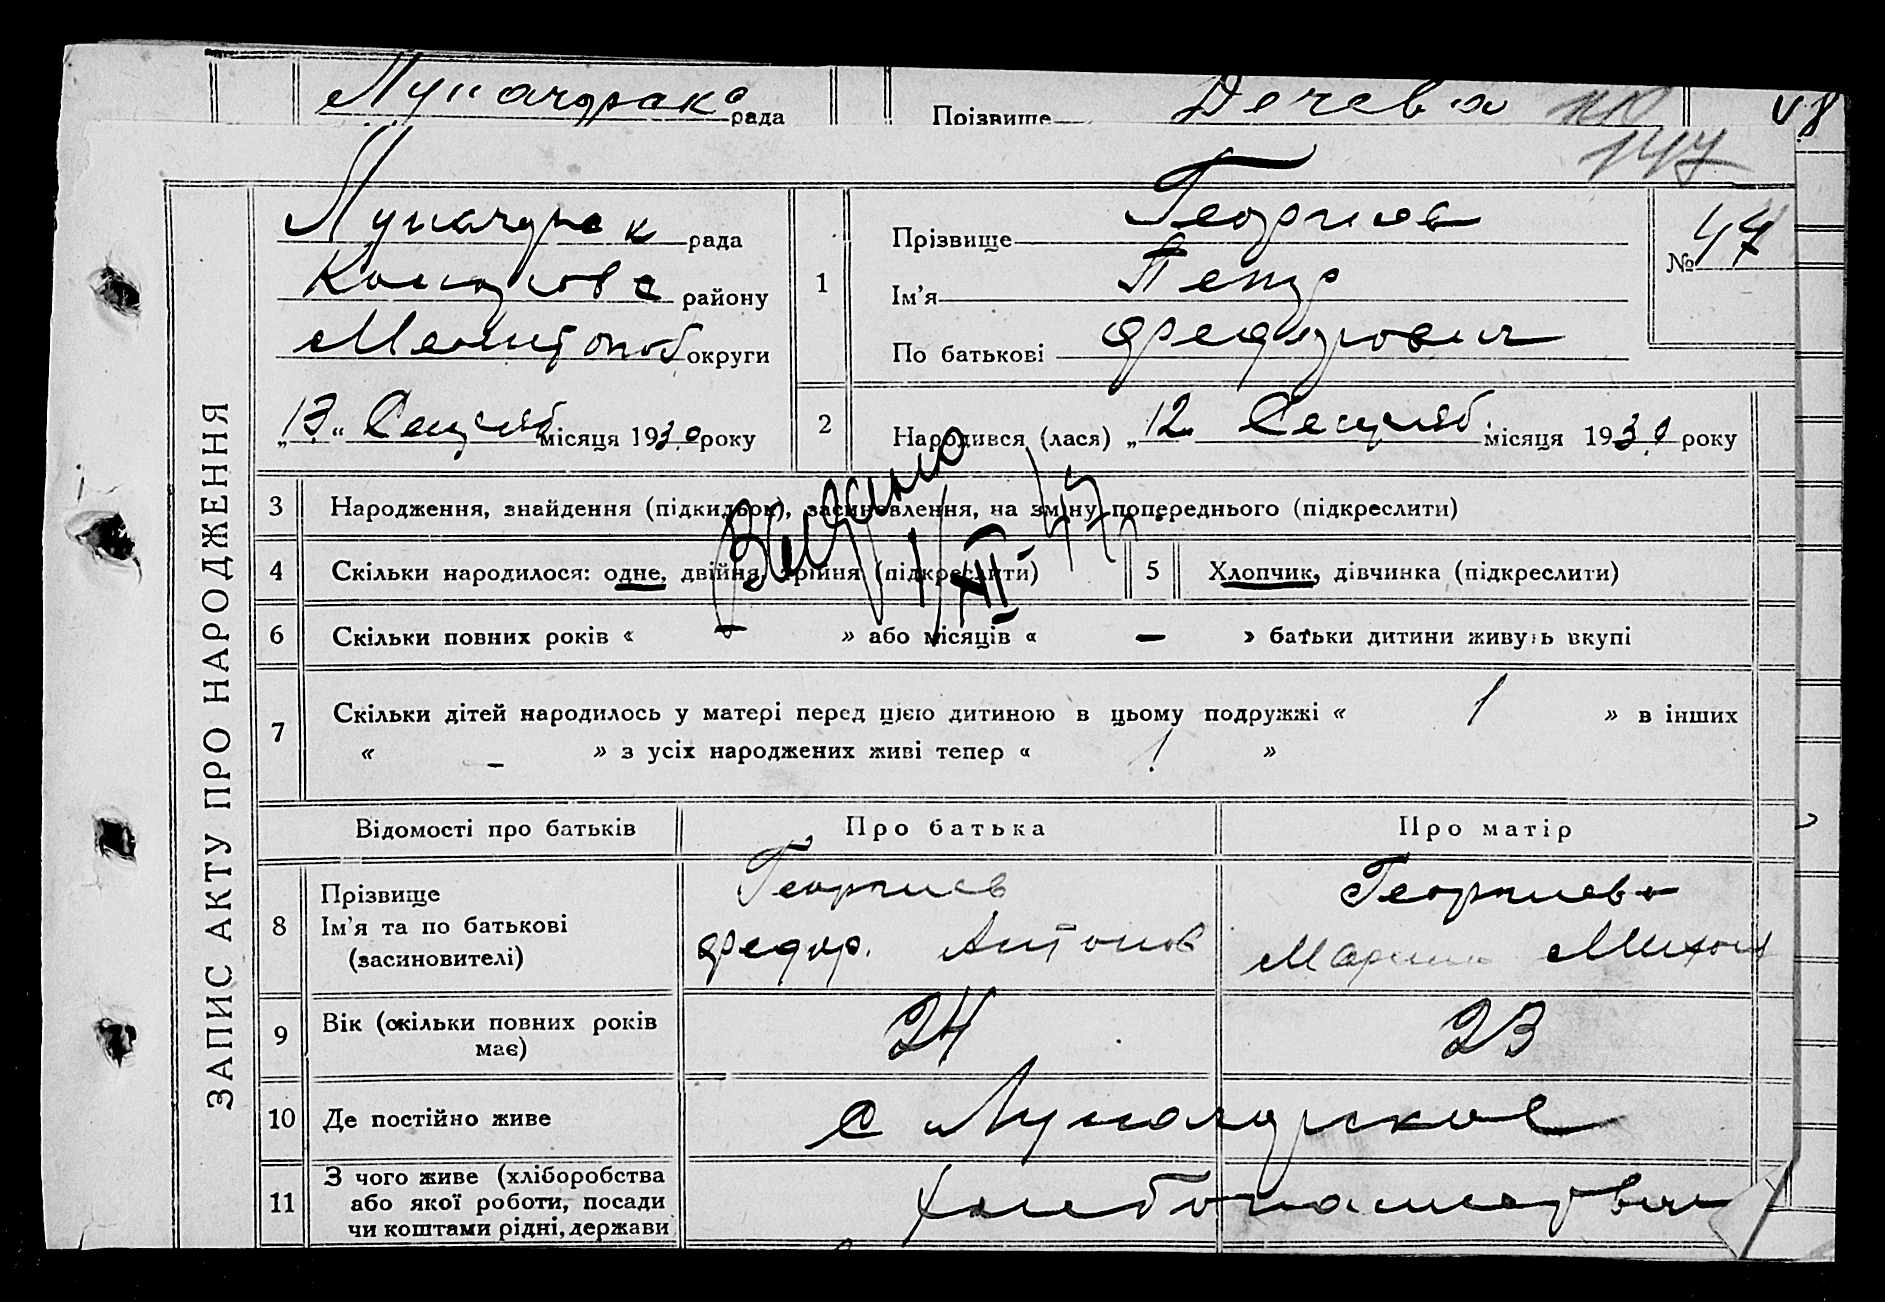 рада
Прізвище Дечева
147
ЗАПИС АКТУ ПРО НАРОДЖЕННЯ
рада
району
округи
„13“ Сентяб місяця 1930 року
1
Прізвище Георгиев
Ім’я Петр
По батькові Федорович
№ 47
2
Народився (лася) „12 Сентяб. місяця 1930 року
3 Народження, знайдення (підкидьок), засиновлення, на зміну попереднього (підкреслити)
Видано
1/XII 47 г.
4 Скільки народилося: одне, двійня, трійня (підкреслити)
5 Хлопчик, дівчинка (підкреслити)
6 Скільки повних років « – » або місяців « – » батьки дитини живуть вкупі
7 Скільки дітей народилось у матері перед цією дитиною в цьому подружжі « 1 » в інших
« – » з усіх народжених живі тепер « 1 »
Відомості про батьків Про батька Про матір
8 Прізвище Георгиев Георгиева
Ім’я та по батькові Федор. Антонов Мария
(засиновителі)
9 Вік (скільки повних років має) 24 23
10 Де постійно живе с Луначарское
11 З чого живе (хліборобства
або якої роботи, посади
чи коштами рідні, держави